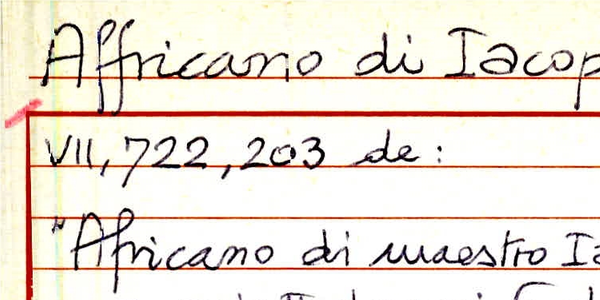 Affricano di Iacop
VII, 722, 203 de:
"Africano di maestro Ia